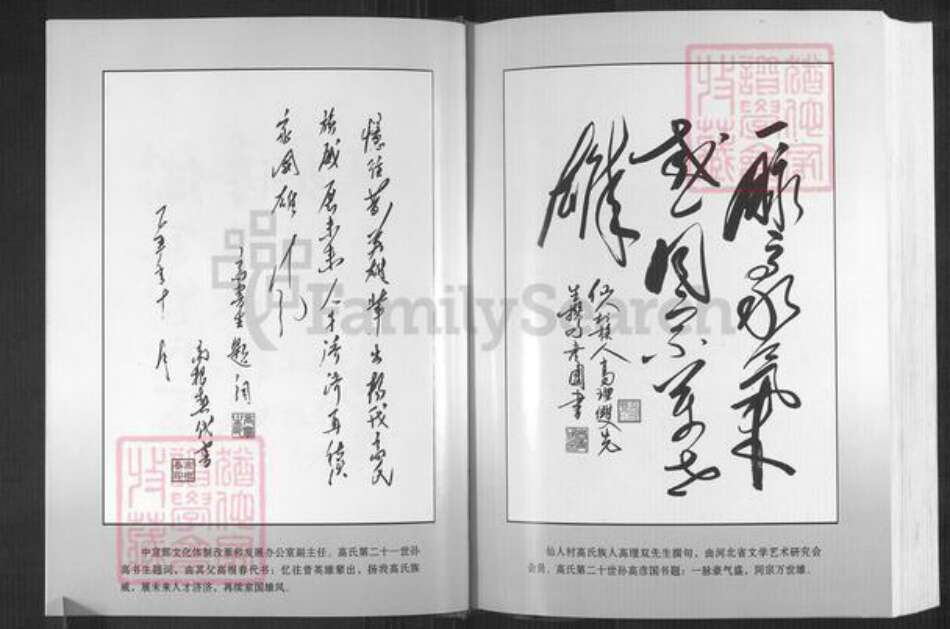 忆往昔英雄辈出扬我高氏
族威展未来人才济济再续
家国雄风
高书生题词
高根春代书
忆往昔英雄辈出，扬我高氏族
中宣部文化体制改革和发展办公室副主任、高氏第二十一世孙
高书生题词，由其父高根春代书：忆往昔英雄辈出，扬我高氏族
威，展未来人才济济，再续家国雄风。
一脉豪气
盛同宗万世
雄
仙人村族人高理双先
生撰句彦国书
仙人村高氏族人高理双先生撰句，由河北省文学艺术研究会
会员、高氏第二十世孙高彦国书题：一脉豪气盛，同宗万世雄。
FamilySearch